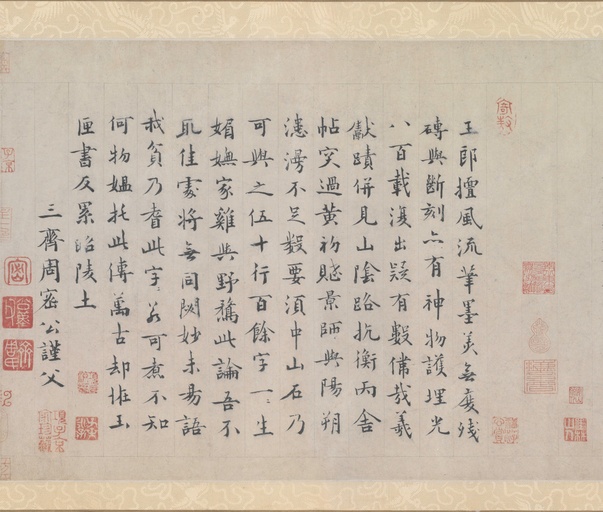 王郎擅風流筆墨美無度殘
磚與斷刻亦有神物護埋光
八百載復出疑有數偉哉羲
獻蹟併見山陰路抗衡丙舍
帖突過黃初賦景師與陽朔
漶漫不足數要須中山石乃
可與之伍十行百餘字一一生
媚嫵家雞與野鶩此論吾不
取佳處將無同闕妙未易語
我貧乃耆此字若可煮不知
何物媼托此傳萬古却推玉
匣書反累昭陵土
三齊周密公謹父